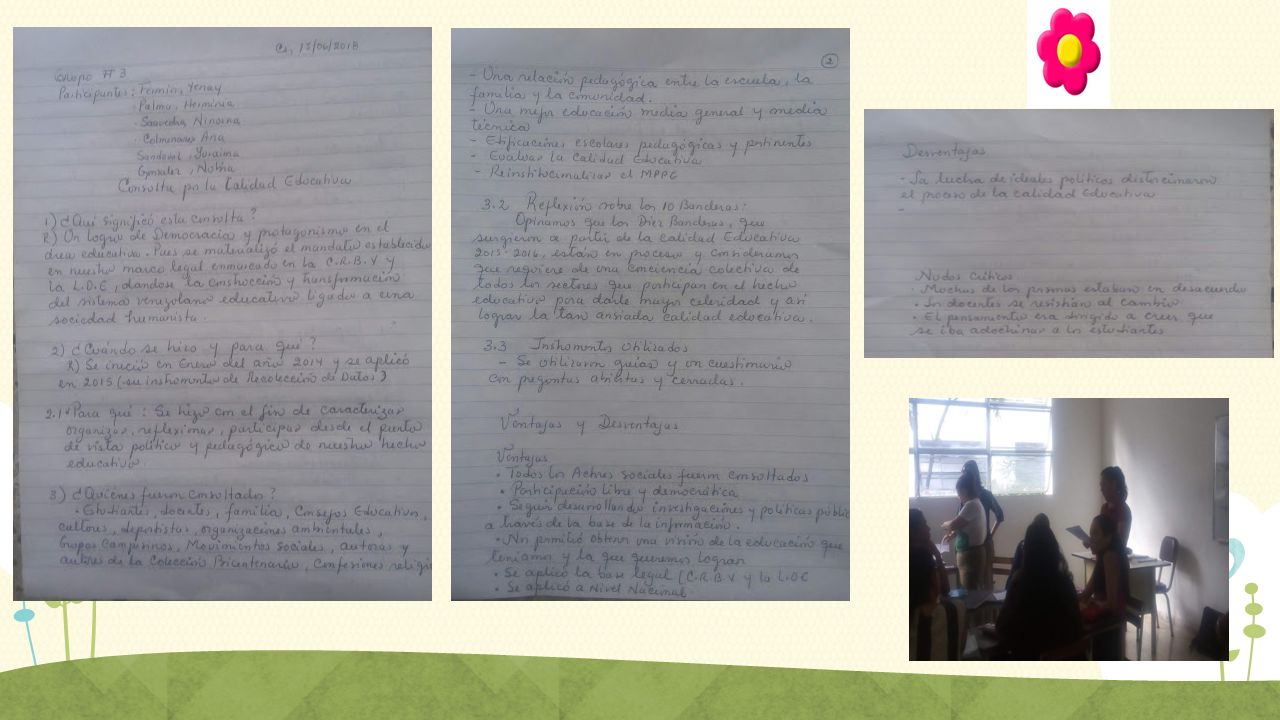 Cs, 15/06/2018
Grupo # 3
Participantes: Fermin, Yenay
· Palma, Herminia
· Saavedra, Ninoska
· Colmenares Ana
Sandoval, Yoraima
Gonzalez, Nubia
Consulta por la Calidad Educativa
1) ¿Qué significó esta consulta?
R) Un logro de Democracia y protagonismo en el
área educativa. Pues se materializó el mandato establecido
en nuestro marco legal enmarcado en la C.R.B.V y
la L.O.E, dandose la construcción y transformación
del sistema venezolano educativo ligado a una
sociedad humanista.
2) ¿Cuándo se hizo y para qué?
R) Se inició en Enero del año 2014 y se aplicó
en 2015 (su instrumento de Recolección de Datos)
2.1 Para qué: Se hizo con el fin de caracterizar
organizar, reflexionar, participar desde el punto
de vista político y pedagógico de nuestro hecho
educativo.
3) ¿Quiénes fueron consultados?
· Estudiantes, docentes, familia, Consejos Educativos,
cultores, deportistas, organizaciones ambientales,
Grupos Campesinos, Movimientos sociales, autoras y
autores de la Colección Bicentenario, Confesiones religi
2
- Una relación pedagógica entre la escuela, la
familia y la comunidad.
- Una mejor educación media general y media
técnica
- Edificaciones escolares pedagógicas y pertinentes
- Evaluar la calidad Educativa
- Reinstitucionalizar el MPPE
3.2 Reflexión sobre las 10 Banderas:
Opinamos que las Diez Banderas, que
surgieron a partir de la calidad Educativa
2015-2016, están en proceso y consideramos
que requiere de una conciencia colectiva de
todos los sectores que participan en el hecho
educativo para darle mayor celeridad y así
lograr la tan ansiada calidad educativa.
3.3 Instrumentos Utilizados
- Se utilizaron guías y un cuestionario
con preguntas abiertas y cerradas.
Ventajas y Desventajas
Ventajas
· Todos los Actores sociales fueron consultados
· Participación Libre y democrática
· Seguir desarrollando investigaciones y políticas públic
a través de la base de la información.
· Nos permitió obtener una visión de la educación que
teníamos y la que queremos lograr
· Se aplicó la base legal (C.R.B.V y la L.O.E
· Se aplicó a Nivel Nacional.
Desventajas
- La lucha de ideales políticos distorcionaron
el proceso de la calidad Educativa
-
Nudos Críticos
· Muchas de los mismos estaban en desacuerdo
· Los docentes se resistían al cambio
· El pensamiento era dirigido a creer que
se iba adoctrinar a los estudiantes